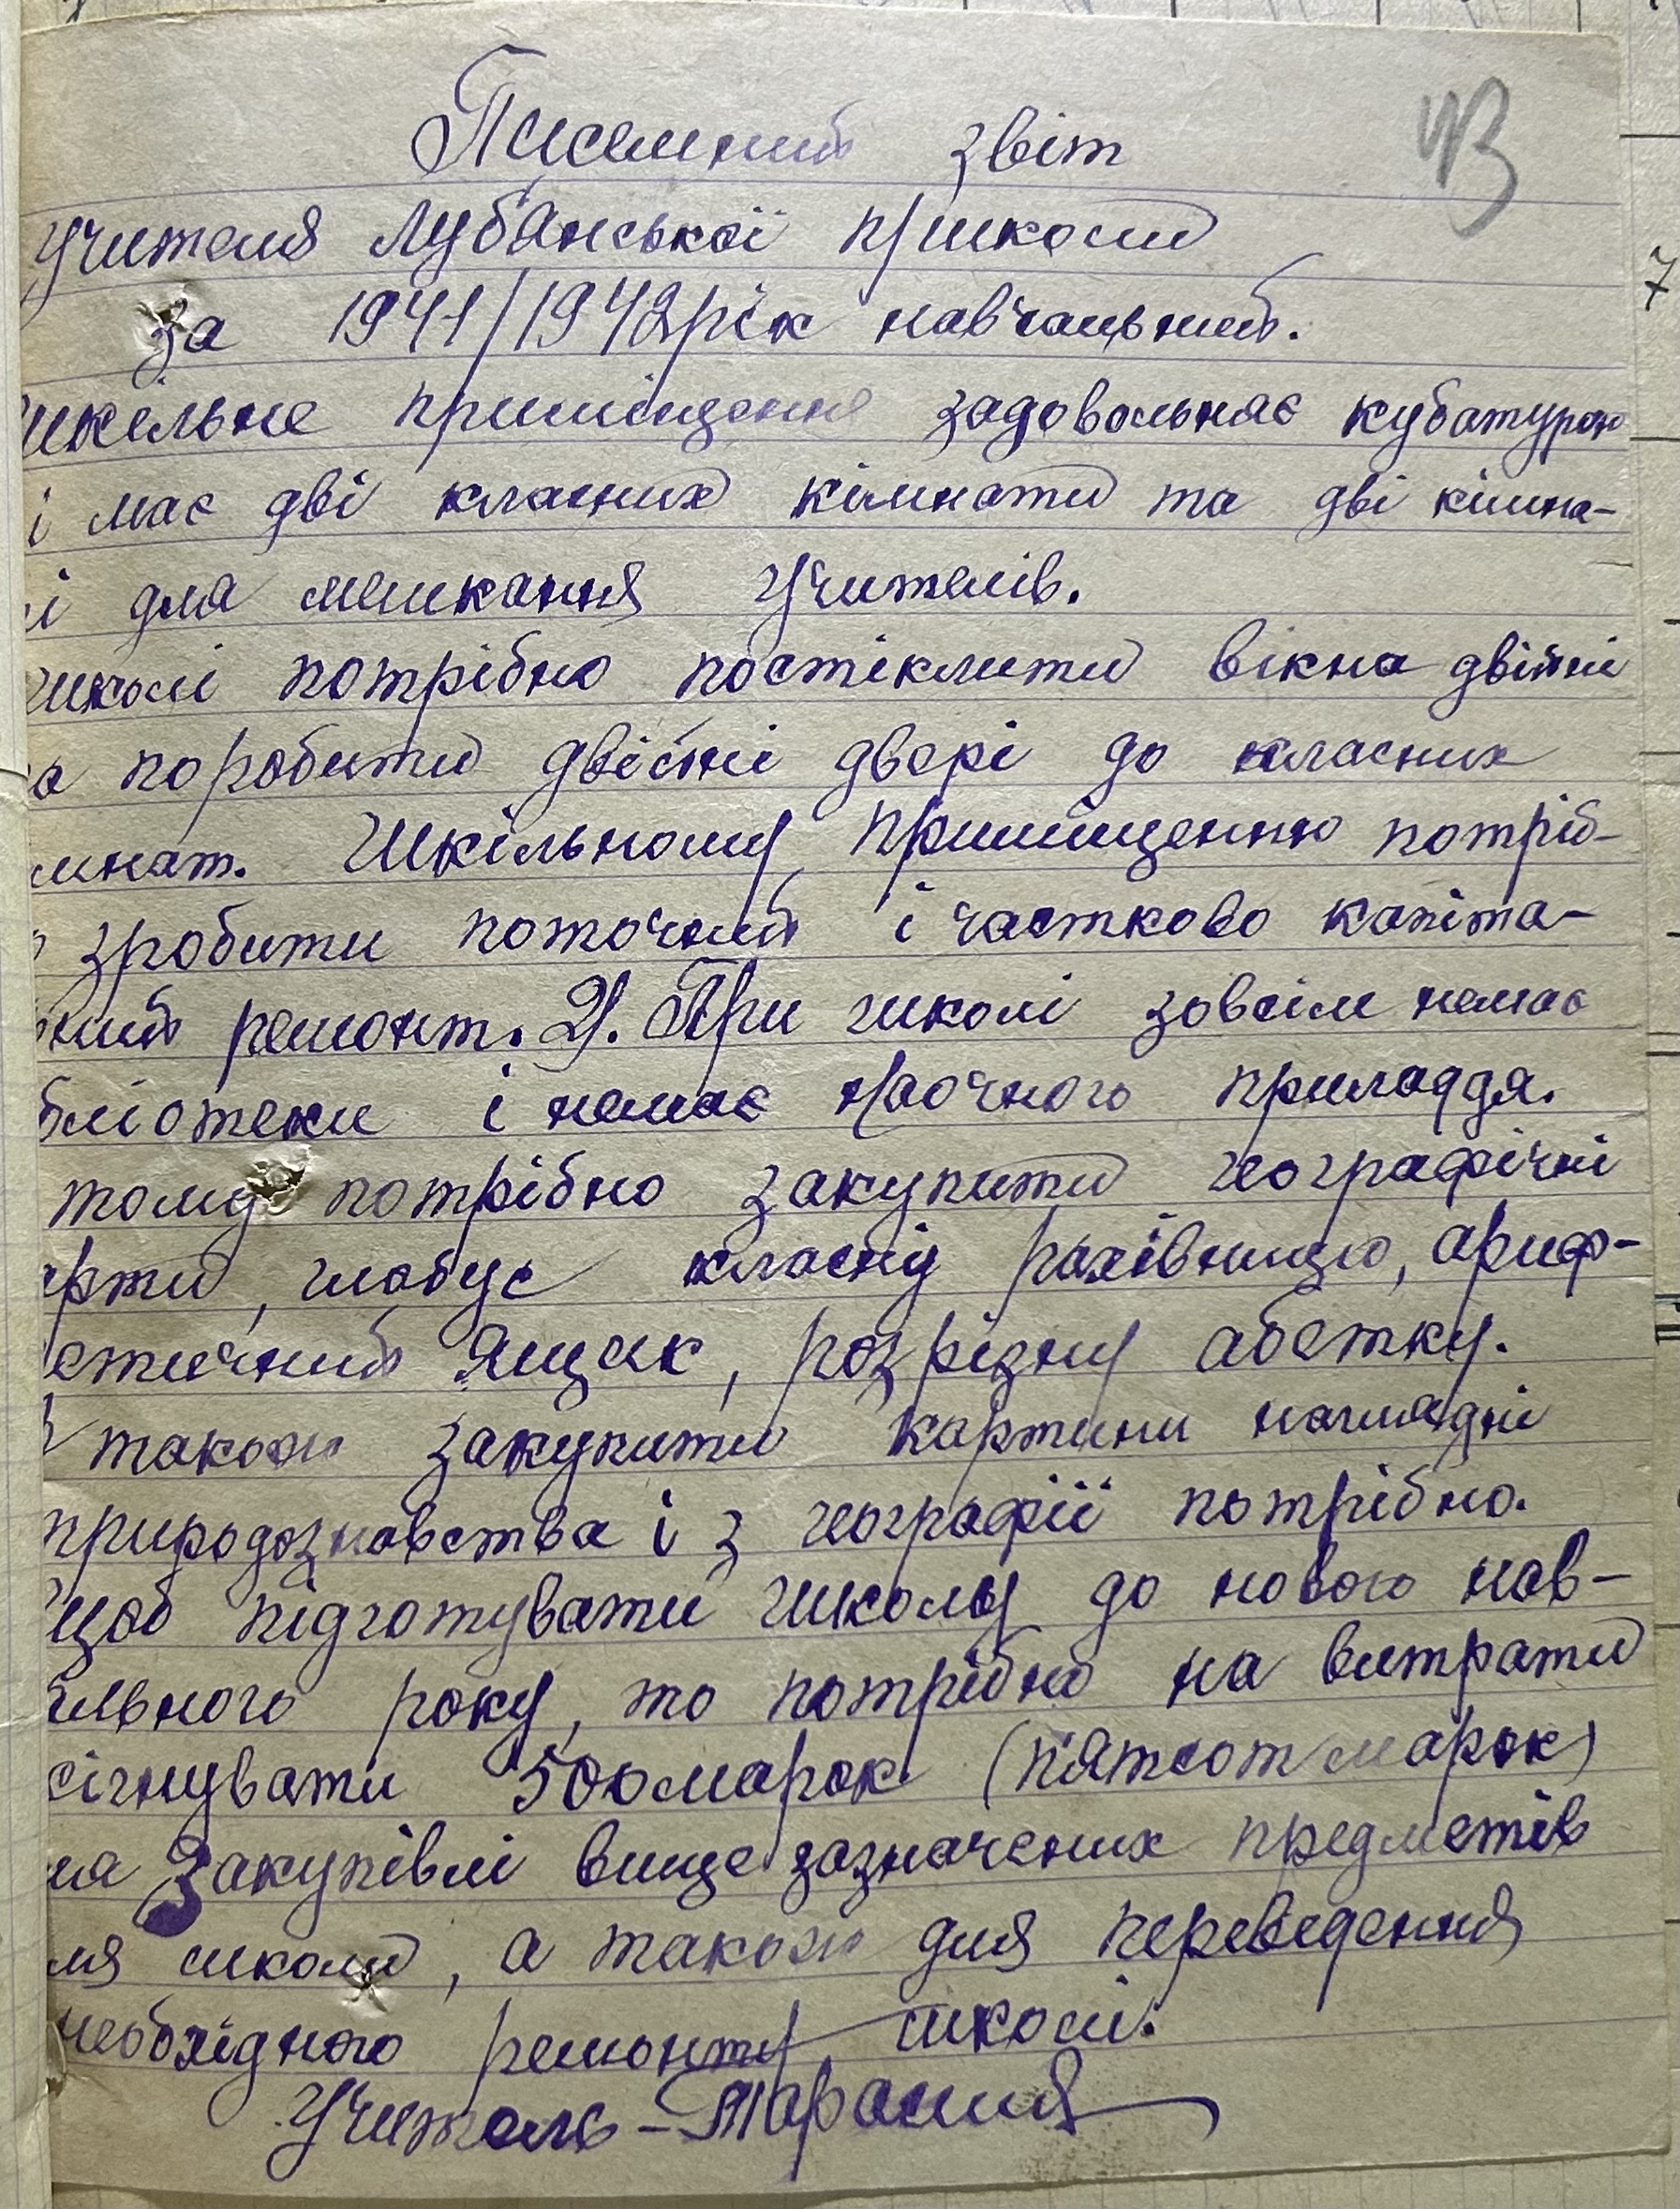 Писемний звіт
43
учителя Лубянської п/школи
за 1941/1942 рік навчальний.
шкільне приміщення задовольняє кубатурою
і має дві класних кімнати та дві кімна-
і для мешкання учителів.
школі потрібно постіклити вікна двійні
а поробити двійні двері до класних
мнат. Шкільному приміщенню потріб-
о зробити поточний і частково капіта-
ний ремонт. 2). При школі зовсім немає
бліотеки і немає наочного приладдя.
тому потрібно закупити географічні
рти, глобус класну рахівницю, ариф-
етичний ящик, розрізну абетку.
також закупити картини наглядні
природознавства і з географії потрібно.
щоб підготувати школу до нового нав-
льного року, то потрібно на витрати
сігнувати 500 марок (пятсот марок)
на закупівлі вище зазначених предметів
ля школи, а також для переведення
необхідного ремонту школі.
Учитель –
7